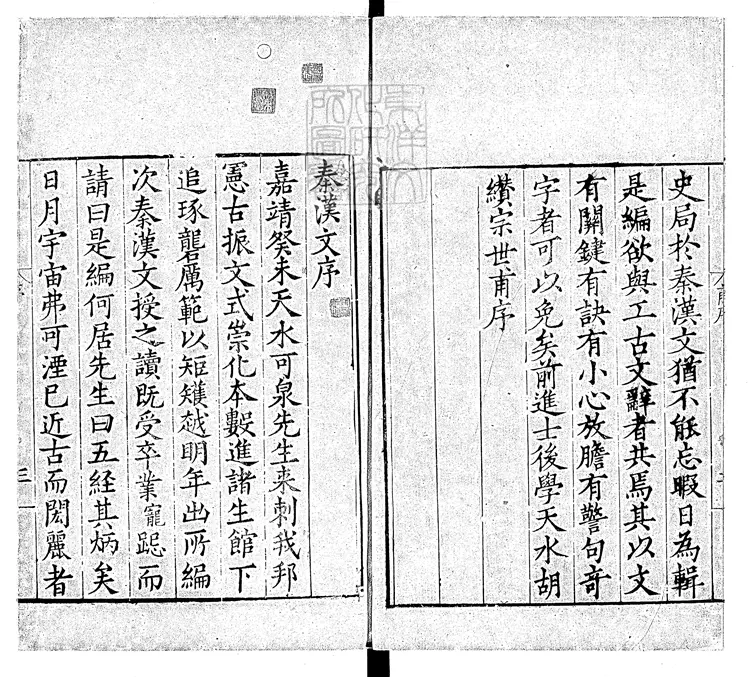 史局於秦漢文猶不能忘暇日為輯
是編欲與工古文辭者共焉其以文
有關鍵有訣有小心放膽有警句奇
字者可以免矣前進士後學天水胡
纘宗世甫序
秦漢文序
嘉靖癸未天水可泉先生來刺我邦
憲古振文式崇化本數進諸生館下
追琢礱厲範以矩矱越明年出所編
次秦漢文授之讀既受卒業寵跽而
請曰是編何居先生曰五経其炳矣
日月宇宙弗可湮已近古而閎麗者